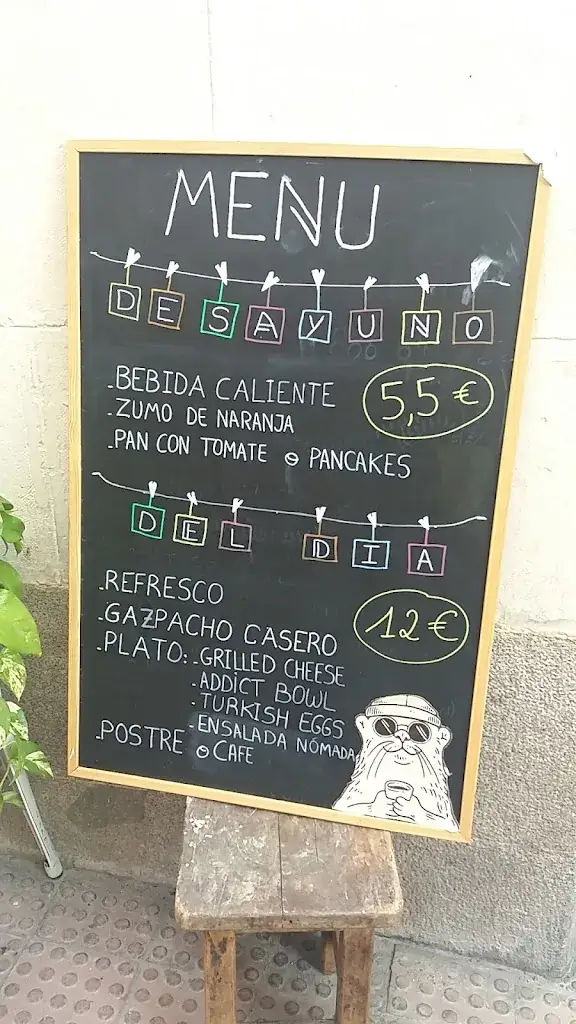 MENU
DESAYUNO
-BEBIDA CALIENTE
5,5 €
-ZUMO DE NARANJA
-PAN CON TOMATE o PANCAKES
DEL DIA
-REFRESCO
-GAZPACHO CASERO
12 €
-PLATO: -GRILLED CHEESE
-ADDICT BOWL
-TURKISH EGGS
-ENSALADA NÓMADA
-POSTRE o CAFE